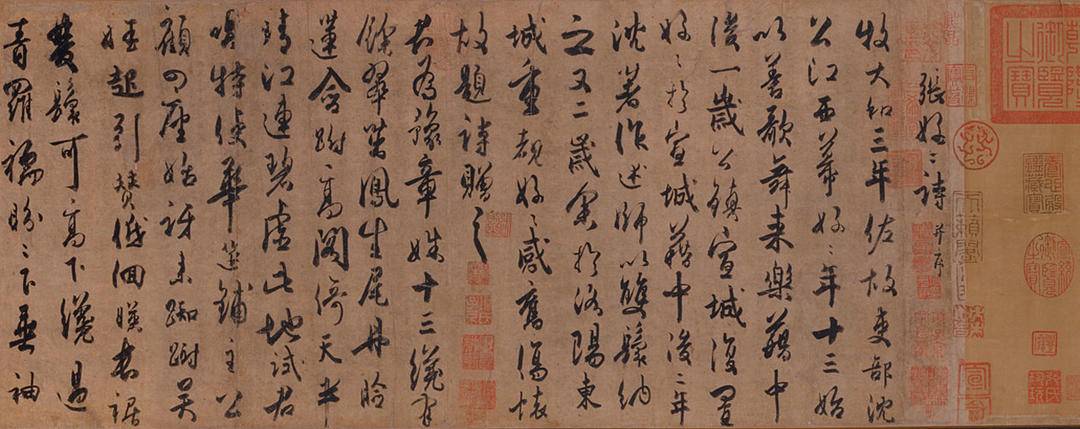 乾隆御覽之寶
天籟閣
張好〻詩 并序
牧大和三年佐故吏部沈
公江西幕好〻年十三始
以善歌舞來樂籍中
後一歲公鎮宣城復置
好〻於宣城籍中後二年
沈著作述師以雙鬟納
之又二歲余於洛陽東
城重覩好〻感舊傷懷
故題詩贈之
君為豫章姝十三纔有
餘翠茁鳳生尾丹臉
蓮含跗高閣倚天半
晴江連碧虛此地試君
唱特使華筵鋪主公
顧四座始訝來踟躕吳
娃起引贊低佪暎長裾
雙鬟可高下纔過
青羅襦盼〻下垂袖